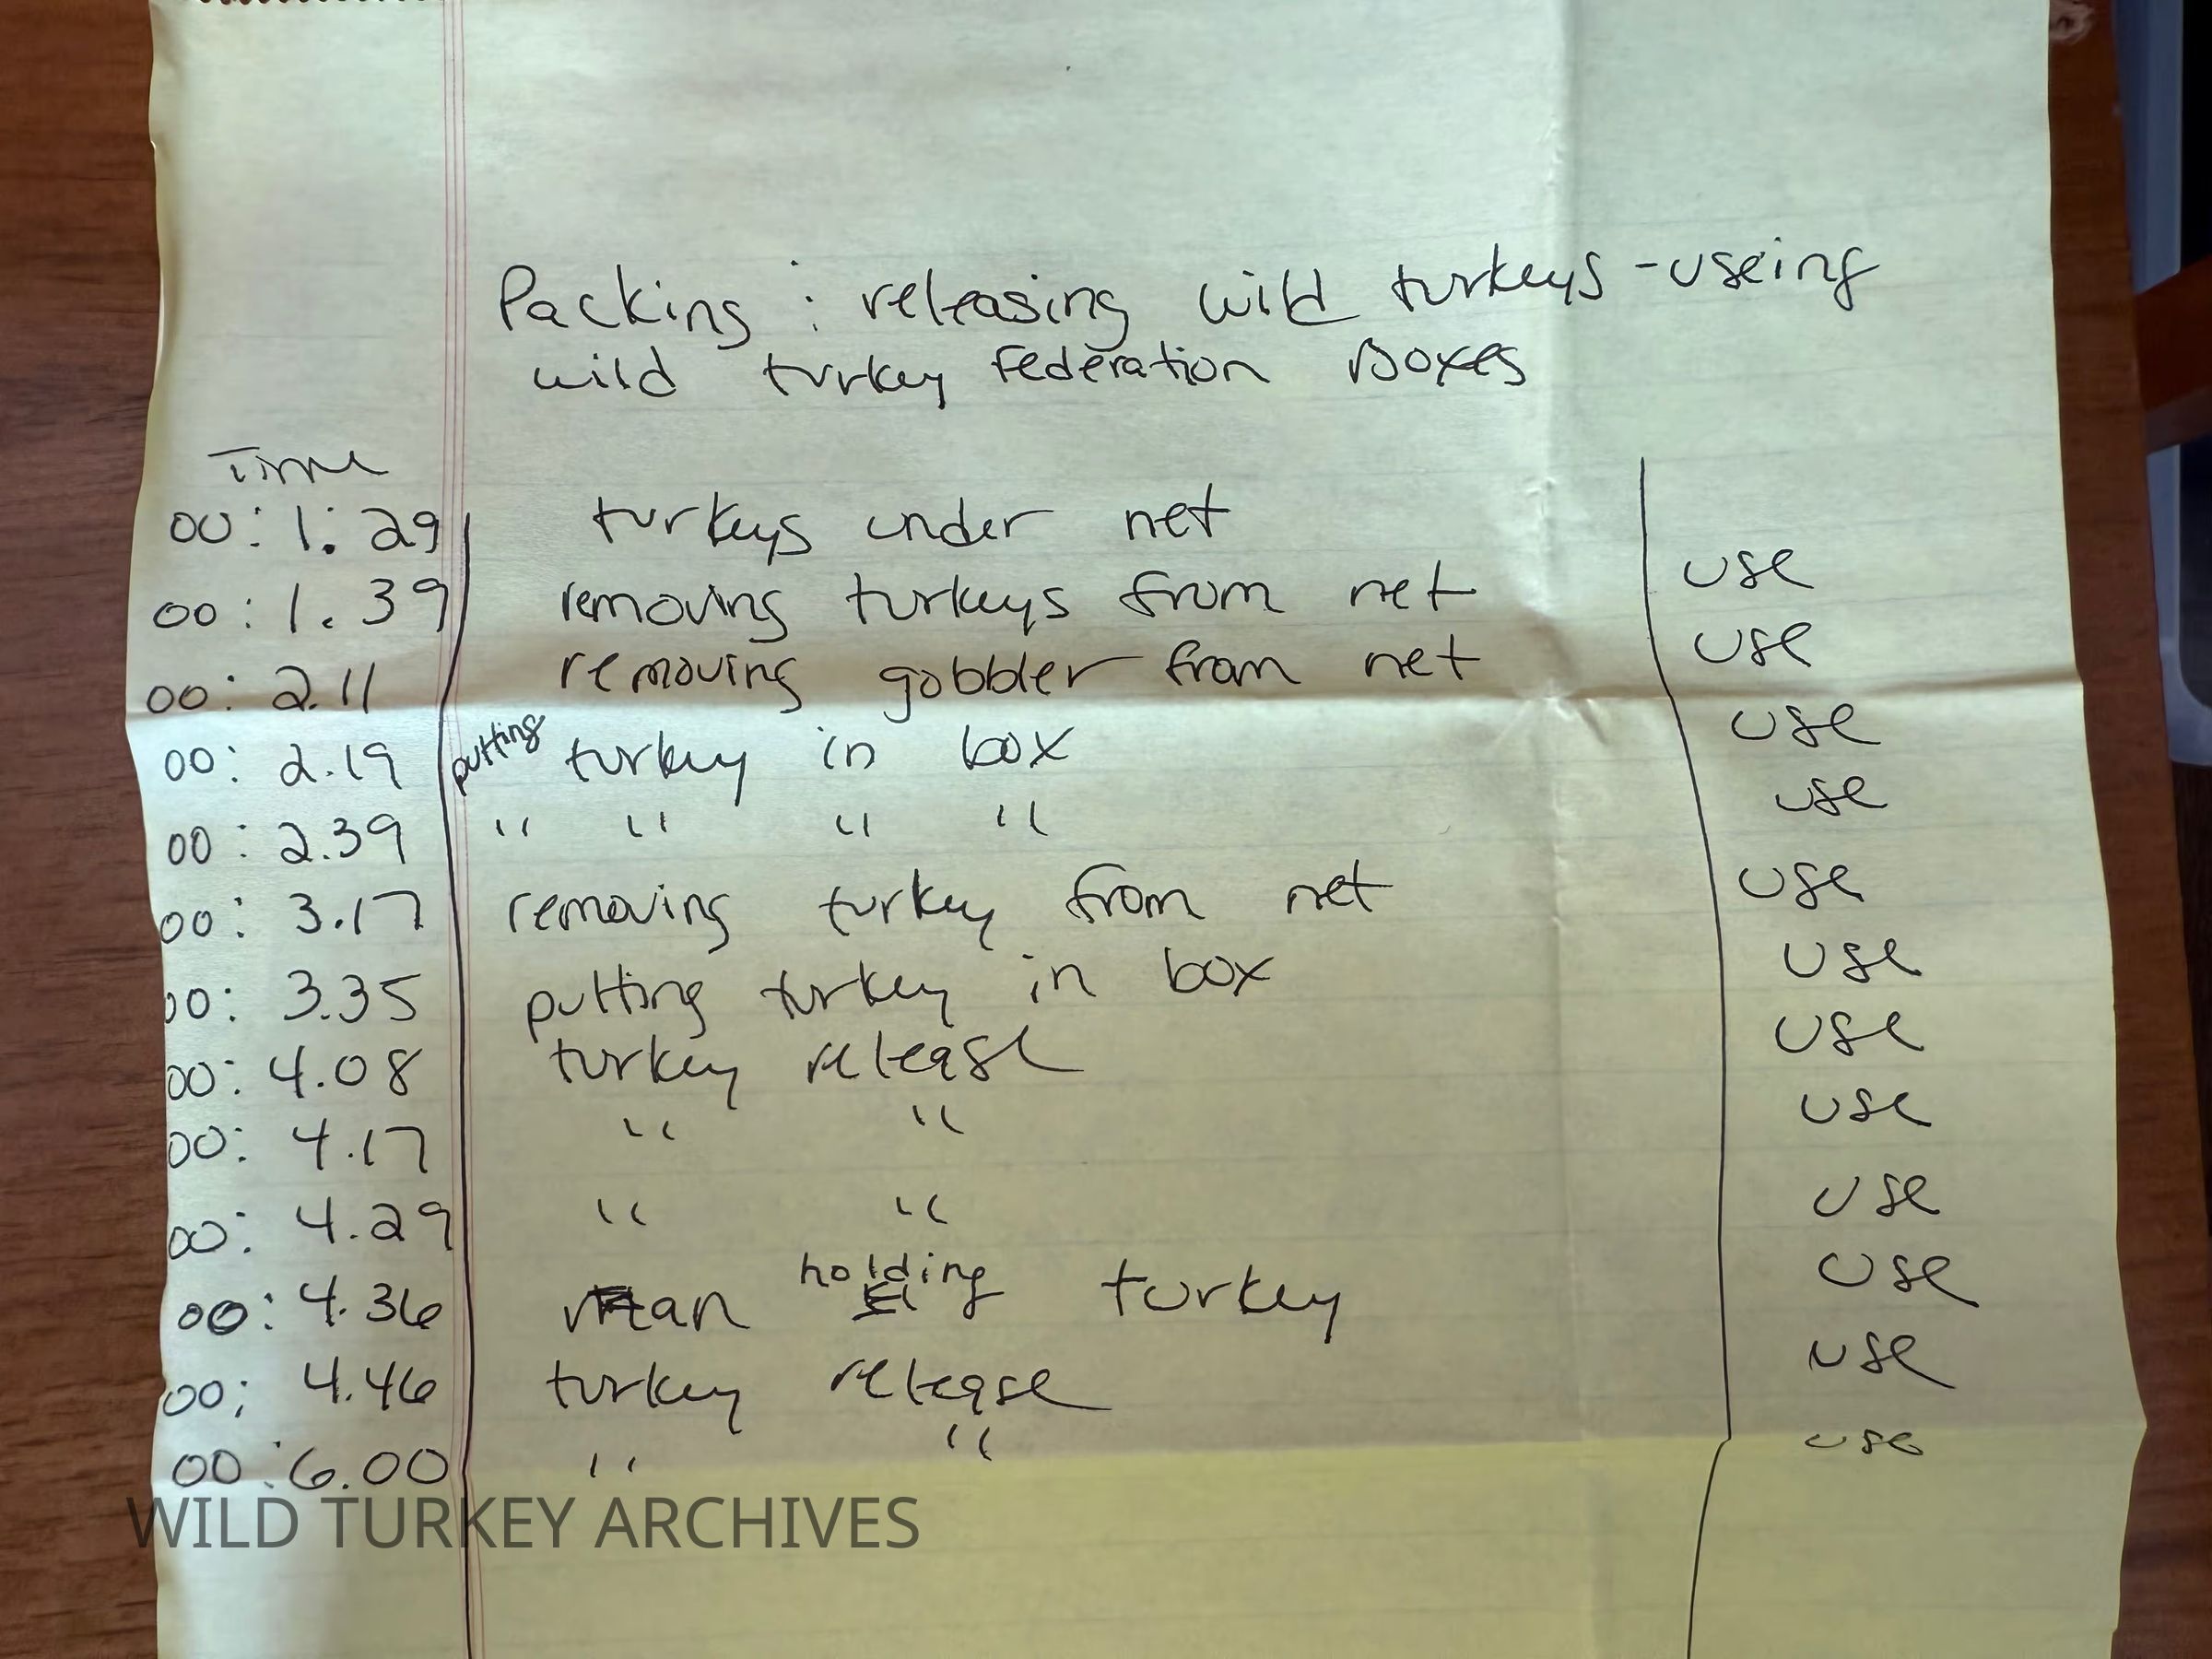 Packing : releasing wild turkeys - useing
wild turkey Federation Boxes
Time
00: 1: 29 turkeys under net use
00: 1. 39 removing turkeys from net use
00: 2.11 removing gobbler from net use
00: 2.19 putting turkey in box use
00: 2.39 " " " " use
00: 3.17 removing turkey from net use
00: 3.35 putting turkey in box use
00: 4.08 turkey release use
00: 4.17 " " use
00: 4.29 " " use
00: 4.36 man holding turkey use
00; 4.46 turkey release use
00: 6.00 " "
WILD TURKEY ARCHIVES